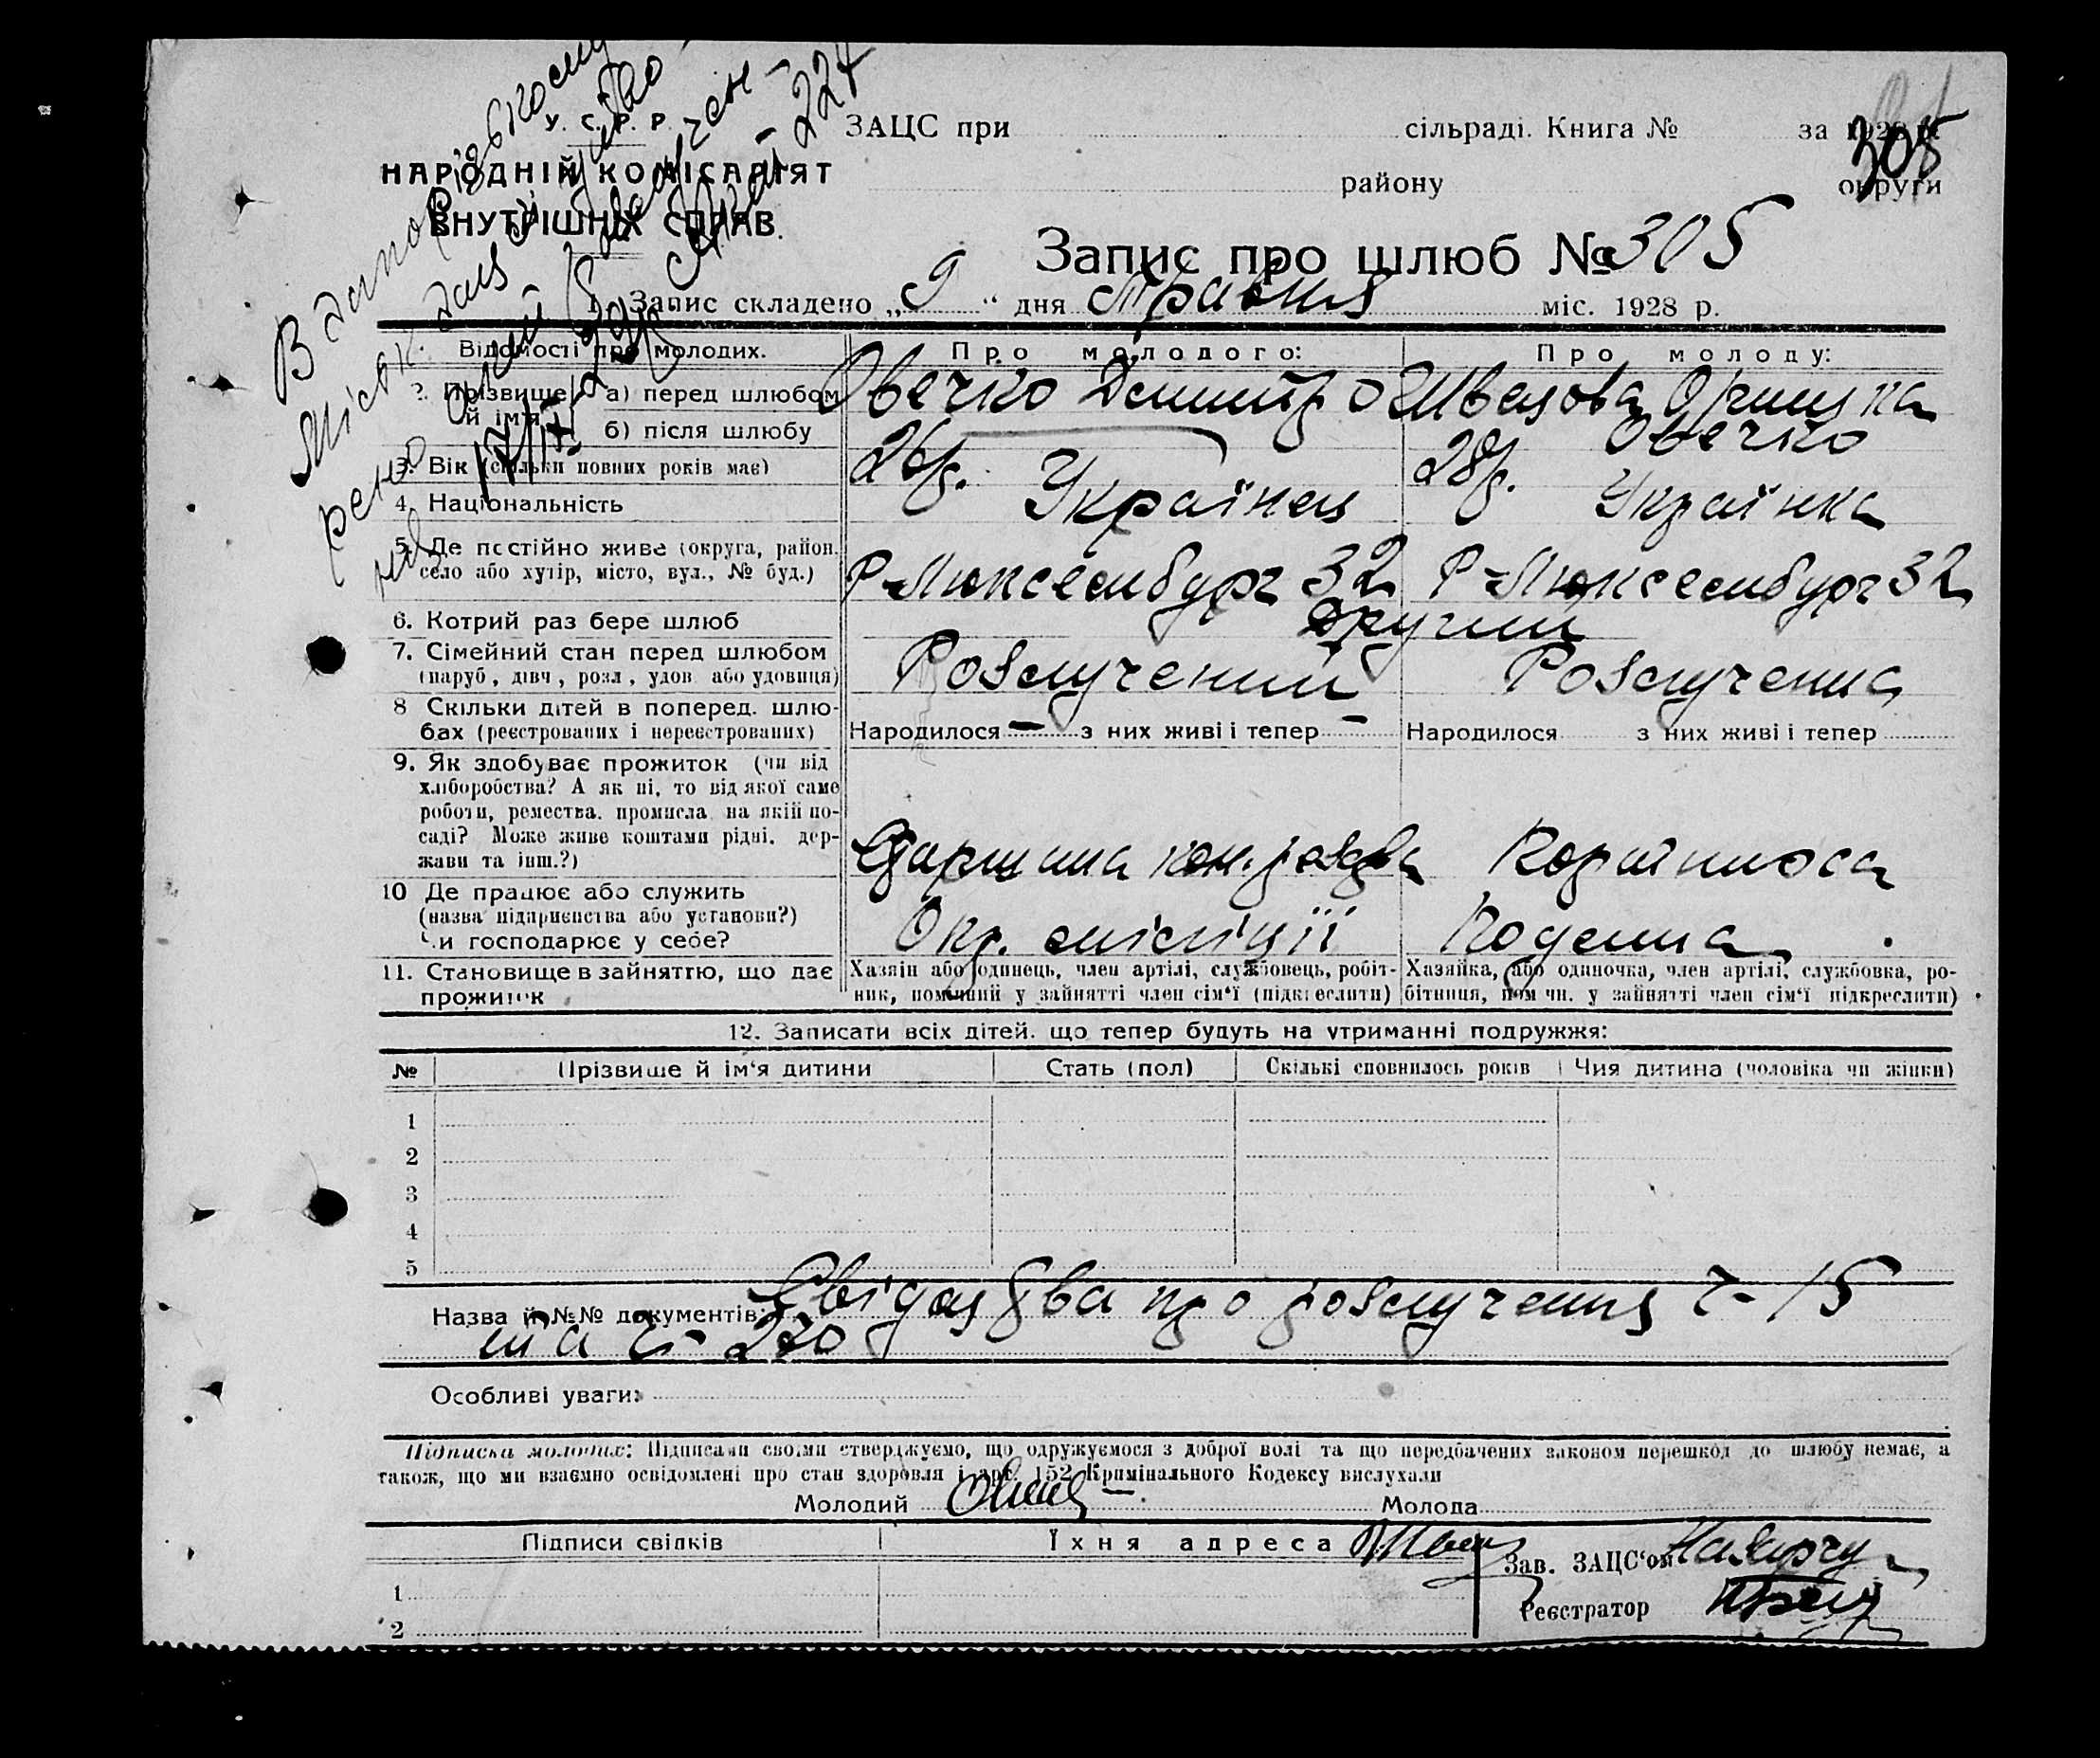 У. С. Р. Р.
НАРОДНІЙ КОМІСАРІЯТ
ВНУТРІШНІХ СПРАВ.
ЗАЦС при сільраді. Книга № за 1928 р.
305
району округи
Запис про шлюб № 305
1. Запис складено „9“ дня Травня міс. 1928 р.
Відомості про молодих. Про молодого: Про молоду:
2. Прізвище й ім'я а) перед шлюбом Овечко Дмитро Швецова Оришка
б) після шлюбу Овечко
3. Вік (скільки повних років має) 26 р. 28 р.
4. Національність Українец Українка
5. Де постійно живе (округа, район, село або хутір, місто, вул., № буд.) Р-Люксембург 32 Р-Люксембург 32
6. Котрий раз бере шлюб другий
7. Сімейний стан перед шлюбом (паруб., дівч., розл., удов. або удовиця) Розлучений Розлучена
8. Скільки дітей в поперед. шлюбах (реєстрованих і нереєстрованих) Народилося — з них живі і тепер — Народилося з них живі і тепер
9. Як здобуває прожиток (чи від
хліборобства? А як ні, то від якої саме
роботи, ремества, промисла, на якій по-
саді? Може живе коштами рідні, дер-
жави та інш.?) Старшина
10. Де працює або служить
(назва підприємства або установи?)
Чи господарює у себе? Окр. міліції
11. Становище в зайняттю, що дає прожиток
Хазяін або одинець, член артілі, службовець, робіт-
ник, помічний у зайнятті член сім'ї (підкреслити)
Хазяйка, або одиночка, член артілі, службовка, ро-
бітниця, помічн. у зайнятті член сім'ї підкреслити)
12. Записати всіх дітей, що тепер будуть на утриманні подружжя:
№ Прізвище й ім'я дитини Стать (пол) Скількі сповнилось років Чия дитина (чоловіка чи жінки)
1
2
3
4
5
Назва й №№ документів: Свідоцтва про розлучення ч- 15
та ч- 270
Особливі уваги:
Підписка молодих: Підписами своїми стверджуємо, що одружуємося з доброї волі та що передбачених законом перешкод до шлюбу немає, а
також, що ми взаємно освідомлені про стан здоровля і арт. 152 Кримінального Кодексу вислухали
Молодий Молода
Підписи свідків Їхня адреса
Зав. ЗАЦС'ом
1
Реєстратор
2